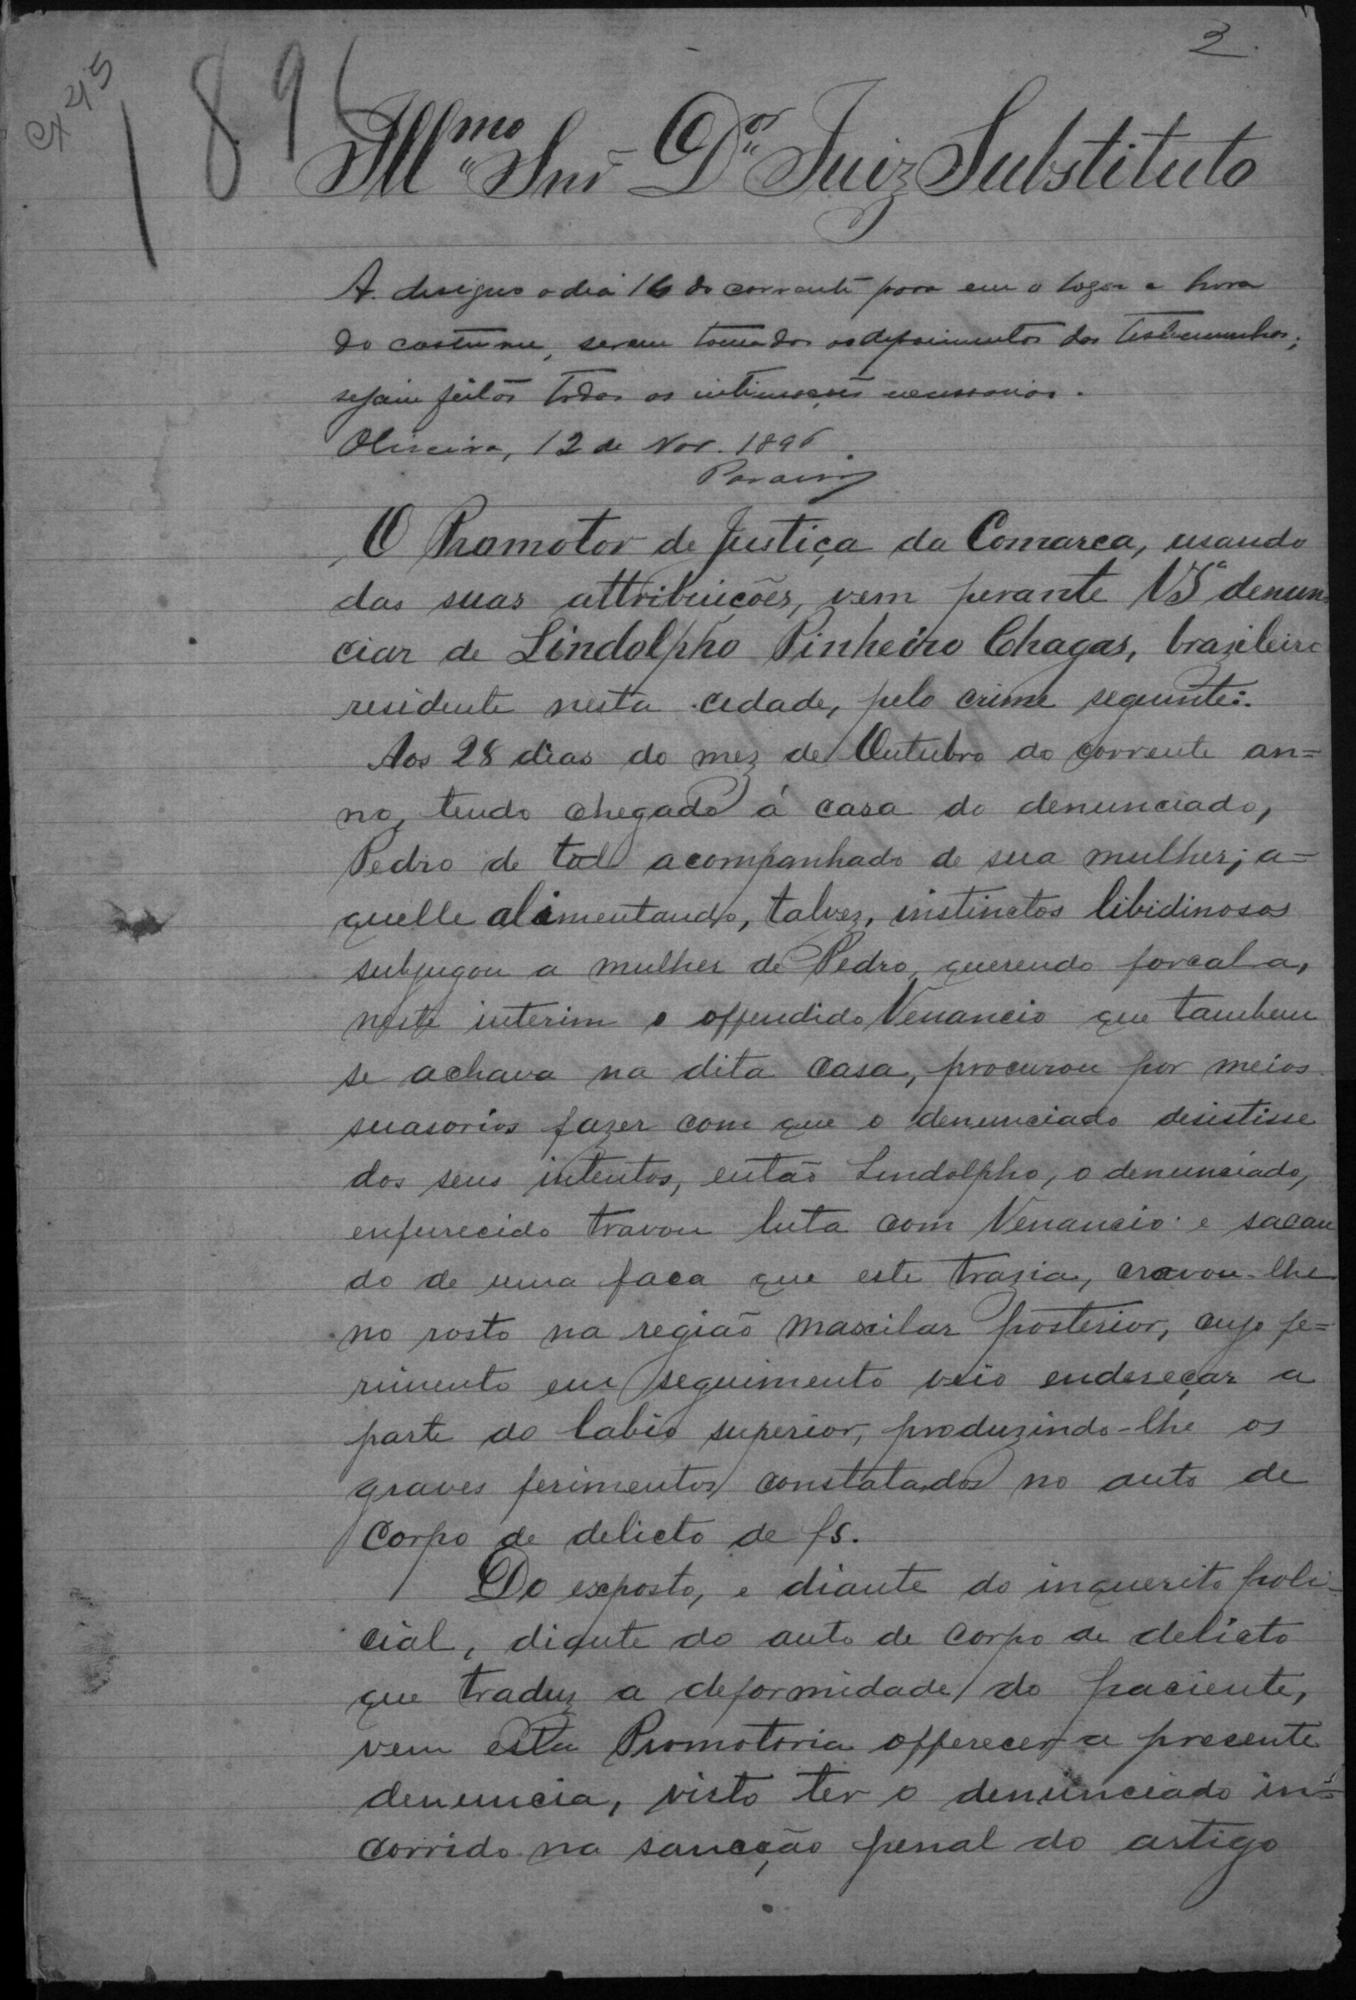 2.
Cx 45
1896
Illmo Snr Dor Juiz Substituto
A. designo o dia 16 do corrente para em o logar e hora
do costume, serem tomados os depoimentos das testemunhas;
sejam feitas todas as intimações necessarias.
Oliveira, 12 de Nov. 1896.
O Promotor de Justiça da Comarca, usando
das suas attribuições, vem perante V Sª denun
ciar de Lindolpho Pinheiro Chagas, brazileiro
residente nesta cidade, pelo crime seguinte:
Aos 28 dias do mez de Outubro do corrente an=
no, tendo chegado á casa do denunciado,
Pedro de tal acompanhado de sua mulher; a=
quelle alimentando, talvez, instinctos libidinosos
subjugou a mulher de Pedro, querendo forcal a,
neste interim o offendido Venancio que tambem
se achava na dita casa, procurou por meios
suasorios fazer com que o denunciado desistisse
dos seus intentos, então Lindolpho, o denunciado,
enfurecido travou luta com Venancio e sacan
do de uma faca que este trazia, cravou-lhe
no rosto na região maxilar posterior, cujo fe=
rimento em seguimento veio endereçar a
parte do labio superior, produzindo-lhe os
graves ferimentos constatados no auto de
corpo de delicto de fs.
Do exposto, e diante do inquerito poli-
cial, diante do auto de corpo de delicto
que traduz a deformidade do paciente,
vem esta Promotoria offerecer a presente
denuncia, visto ter o denunciado in=
corrido na sancção penal do artigo